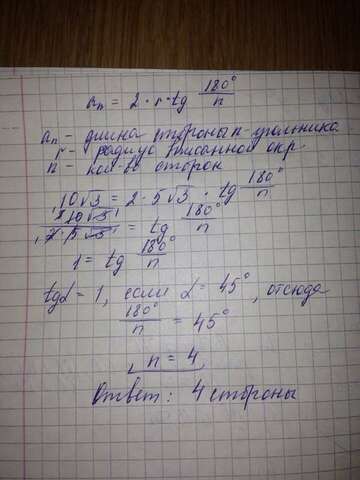 aₙ = 2 · r · tg 180°/n
aₙ - длина стороны n-угольника
r - радиус вписанной окр.
n - кол-во сторон
10√3 = 2 · 5√3 · tg 180°/n
10√3 / 2 · 5√3 = tg 180°/n
1 = tg 180°/n
tgα = 1, если α = 45°, отсюда
180°/n = 45°
n = 4
Ответ: 4 стороны